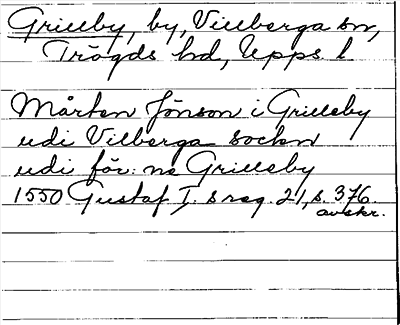 Grillby, by, Villberga sn,
Trögds hd, Upps l
Mårten Jönson i Grillsby
udi Vilberga socken
udi för: ne Grillsby
1550 Gustaf I. s reg. 21, s. 376.
avskr.